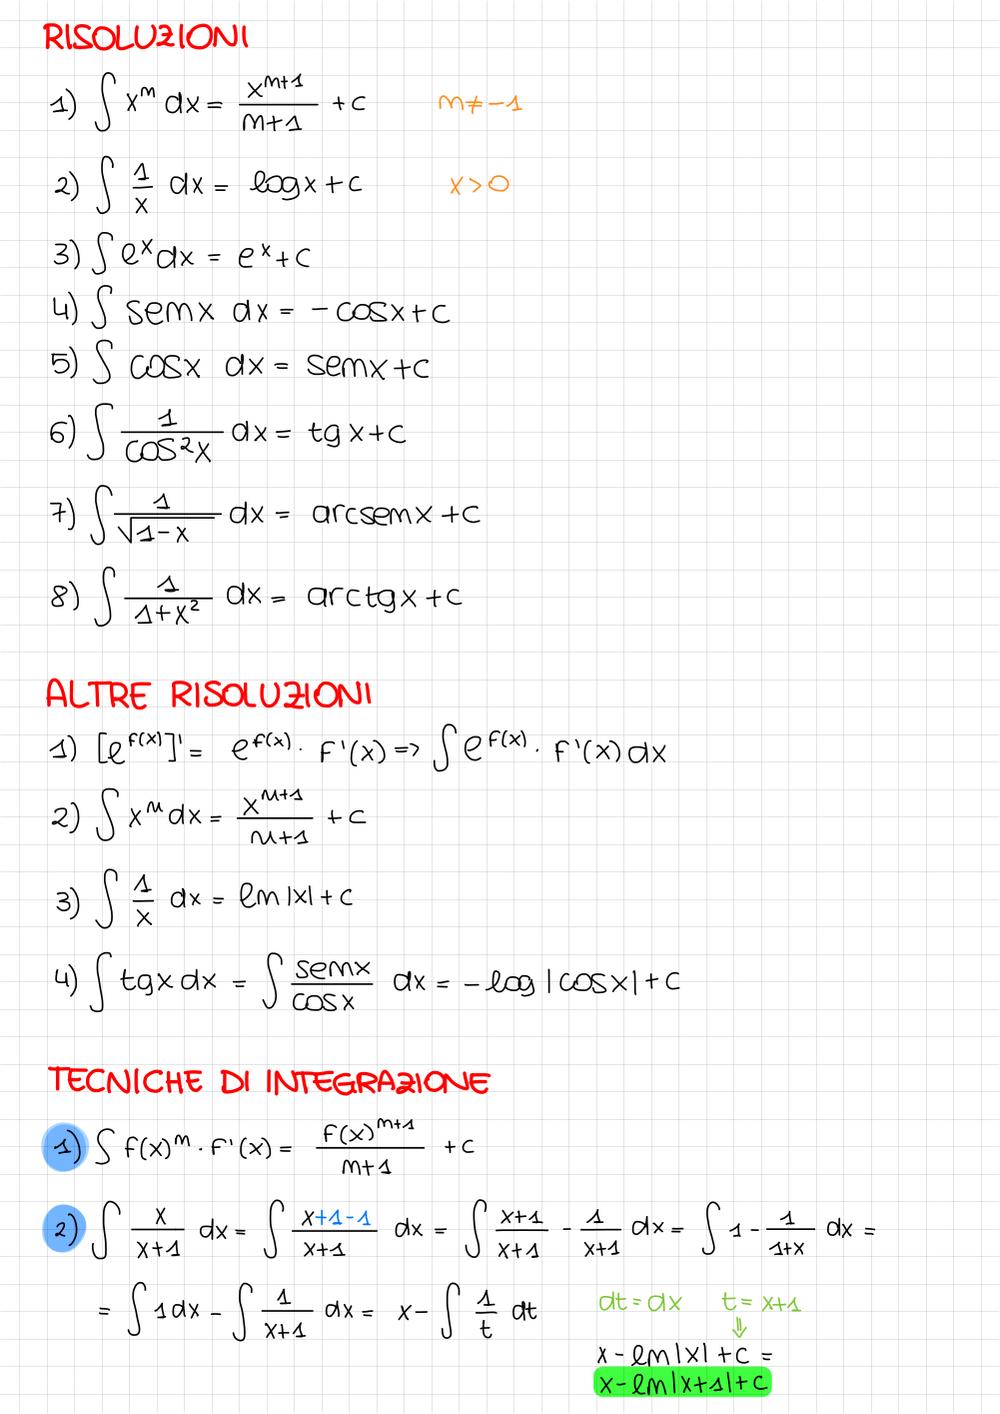 RISOLUZIONI
1) ∫ x^m dx = x^(m+1)/(m+1) + c    m ≠ -1
2) ∫ 1/x dx = logx + c    x > 0
3) ∫ e^x dx = e^x + c
4) ∫ semx dx = - cosx + c
5) ∫ cosx dx = semx + c
6) ∫ 1/cos²x dx = tgx + c
7) ∫ 1/√(1-x) dx = arcsemx + c
8) ∫ 1/(1+x²) dx = arctgx + c
ALTRE RISOLUZIONI
1) [e^f(x)]' = e^f(x) · f'(x) => ∫ e^f(x) · f'(x) dx
2) ∫ x^n dx = x^(n+1)/(n+1) + c
3) ∫ 1/x dx = lm |x| + c
4) ∫ tgx dx = ∫ semx/cosx dx = - log |cosx| + c
TECNICHE DI INTEGRAZIONE
1) ∫ f(x)^m · f'(x) = f(x)^(m+1)/(m+1) + c
2) ∫ x/(x+1) dx = ∫ (x+1-1)/(x+1) dx = ∫ (x+1)/(x+1) - 1/(x+1) dx = ∫ 1 - 1/(1+x) dx =
= ∫ 1dx - ∫ 1/(x+1) dx = x - ∫ 1/t dt    dt = dx    t = x+1
⇓
x - lm |x| + c =
x - lm |x+1| + c